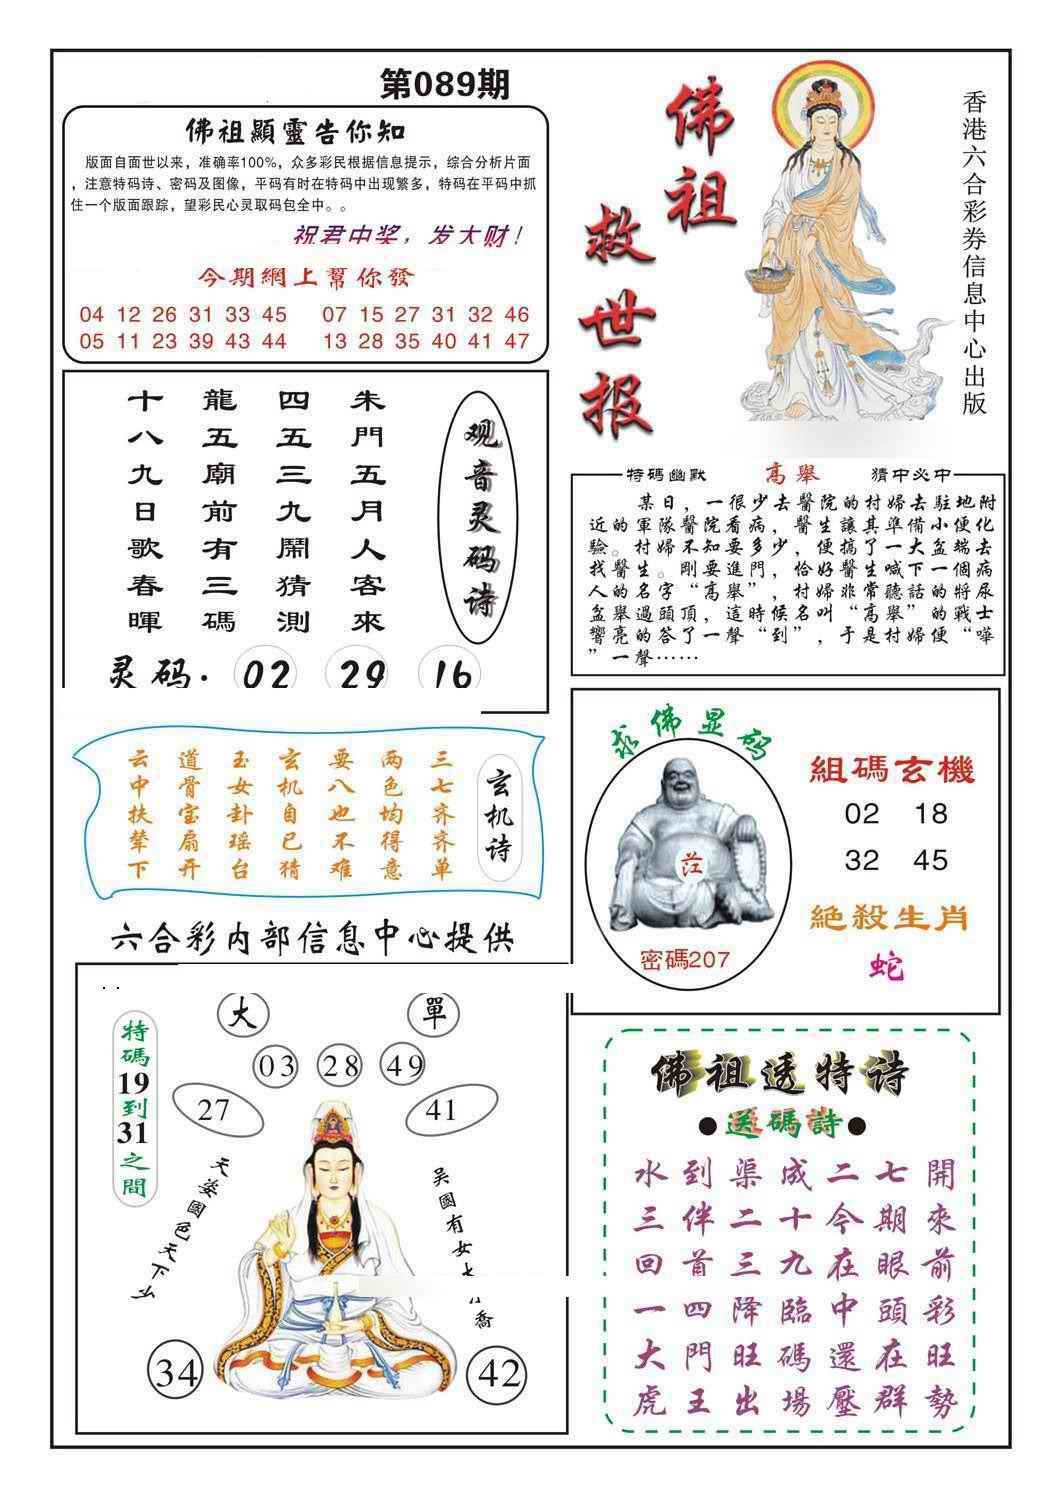 第089期
佛祖顯靈告你知
版面自面世以来，准确率100%，众多彩民根据信息提示，综合分析片面
，注意特码诗、密码及图像，平码有时在特码中出现繁多，特码在平码中抓
住一个版面跟踪，望彩民心灵取码包全中。。
祝君中奖，发大财！
今期網上幫你發
04 12 26 31 33 45 07 15 27 31 32 46
05 11 23 39 43 44 13 28 35 40 41 47
佛祖
救世报
香港六合彩券信息中心出版
观音灵码诗
朱門五月人客來
四五三九鬧猜測
龍五廟前有三碼
十八九日歌春暉
灵码. 02 29 16
特碼幽默 高舉 猜中必中
某日，一很少去醫院的村婦去駐地附
近的軍隊醫院看病，醫生讓其準備小便化
驗。村婦不知要多少，便搞了一大盆端去
找醫生。剛要進門，恰好醫生喊下一個病
人的名字“高舉”，村婦非常聽話的將尿
盆舉過頭頂，這時候名叫“高舉”的戰士
響亮的答了一聲“到”，于是村婦便“嘩
”一聲……
玄机诗
三七齐齐单
两色均得意
要八也不难
玄机自已猜
玉女卦瑶台
道骨宝扇开
云中扶辇下
求佛显码
密碼207
組碼玄機
02 18
32 45
絕殺生肖
蛇
六合彩内部信息中心提供
特碼19到31之間
大 單
03 28 49
27 41
天姿國色天下
吴國有女
喬
34 42
佛祖透特诗
●送碼詩●
水到渠成二七開
三伴二十今期來
回首三九在眼前
一四降臨中頭彩
大門旺碼還在旺
虎王出場壓群勢